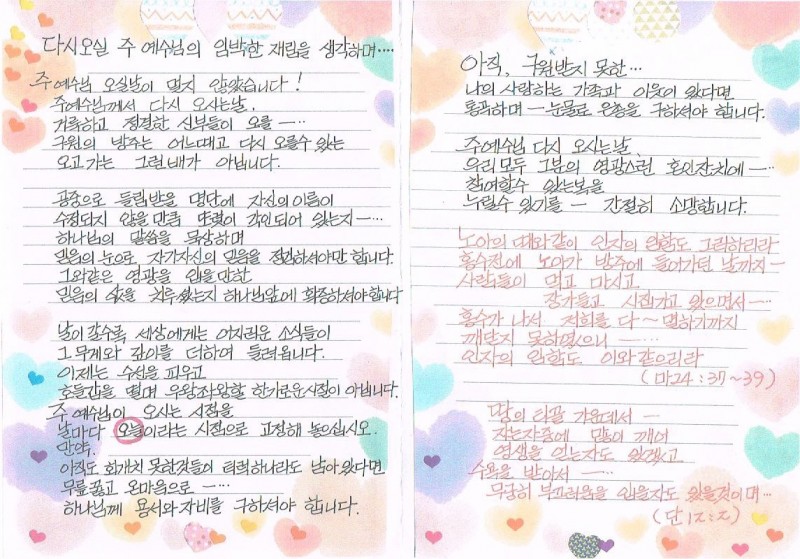 다시오실 주 예수님의 임박한 재림을 생각하며....
주 예수님 오실날이 멀지 않았습니다!
주예수님께서 다시 오시는날,
거룩하고 정결한 신부들이 오를 ㅡ…
구원의 방주는 어느때고 다시 오를수 있는
오고가는 그런배가 아닙니다.
공중으로 들림받을 명단에 자신의 이름이
수정되지 않을만큼 또렷이 각인되어 있는지ㅡ…
하나님의 말씀을 묵상하며
믿음의 눈으로 자기자신의 믿음을 점검하셔야만 합니다.
그와같은 영광을 입을만한
믿음의 값을 치루셨는지 하나님앞에 확증하셔야합니다
날이 갈수록 세상에게는 어지러운 소식들이
그 무게와 깊이를 더하여 들려옵니다.
이제는 수선을 피우고
호들갑을 떨며 우왕좌왕할 한가로운시절이 아닙니다.
주 예수님이 오시는 시점을
날마다 오늘이라는 시점으로 고정해 놓으십시오.
만약,
아직도 회개치 못한것들이 티럭하나라도 남아있다면
무릎꿇고 온마음으로 ㅡ…
하나님께 용서와 자비를 구하셔야 합니다.
아직, 구원받지 못한…
나의 사랑하는 가족과 이웃이 있다면
통곡하며 ㅡ 눈물로 은총을 구하셔야 합니다.
주예수님 다시 오시는날,
우리모두 그분의 영광스런 혼인잔치에ㅡ…
참여할수 있는복을
누릴수 있기를 ㅡ 간절히 소망합니다.
노아의 때와같이 인자의 임함도 그러하리라
홍수전에 노아가 방주에 들어가던 날까지ㅡ
사람들이 먹고 마시고
장가들고 시집가고 있으면서ㅡ…
홍수가 나서 저희를 다~멸하기까지
깨닫지 못하였으니 ㅡ…
인자의 임함도 이와같으리라
(마24:37~39)
땅의 티끌 가운데서 ㅡ
자는자중에 많이 깨어
영생을 얻는자도 있겠고
수욕을 받아서 ㅡ…
무궁히 부끄러움을 입을자도 있을것이며…
(단12:2)